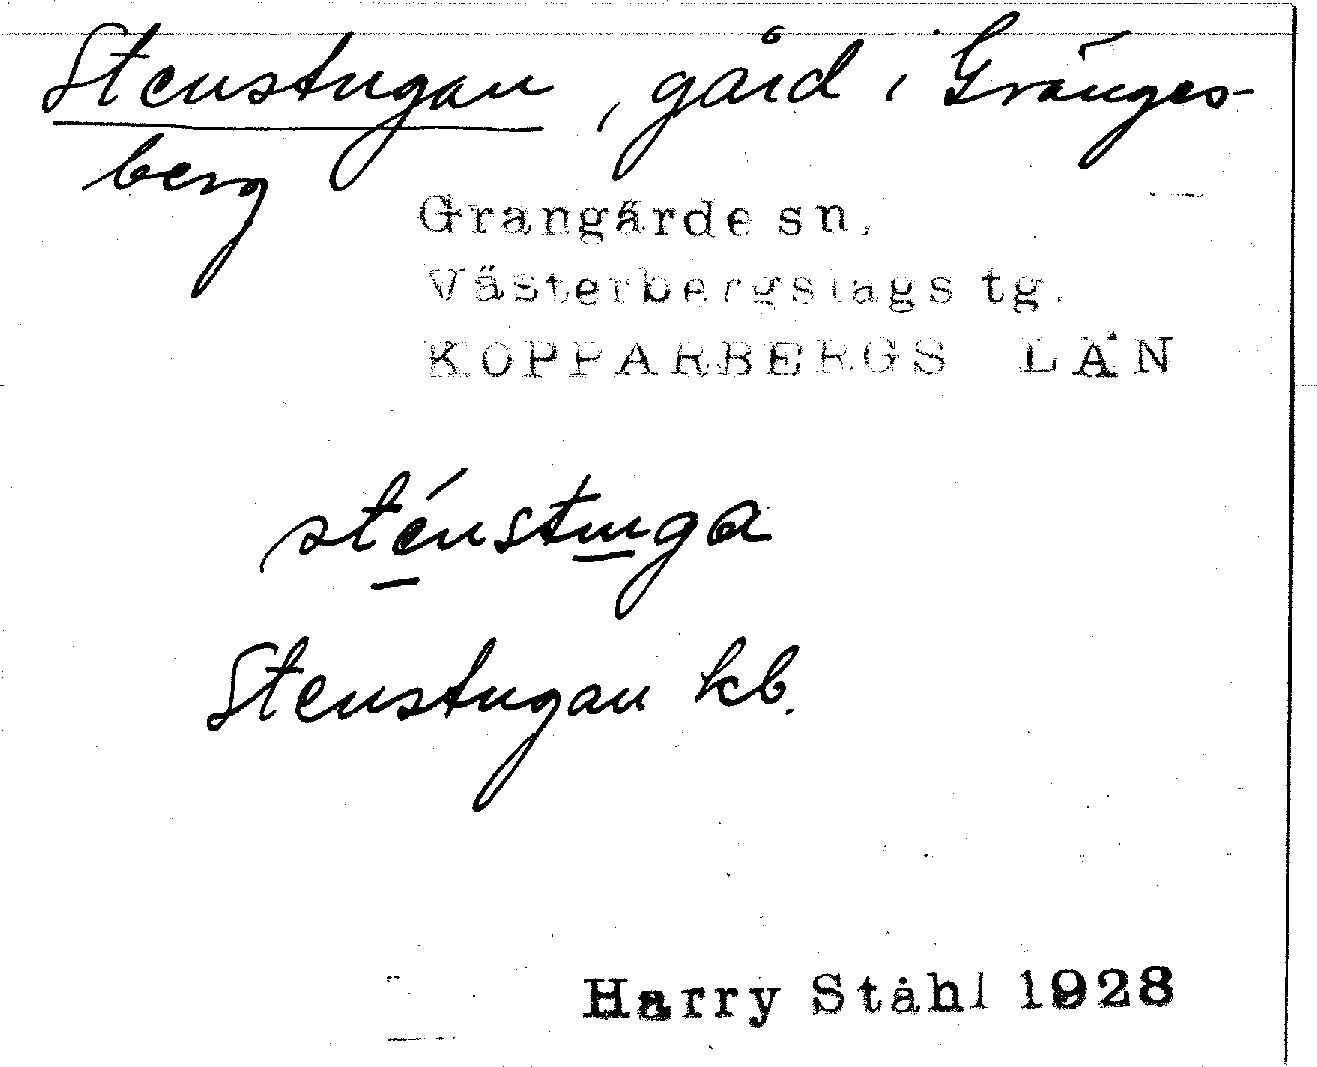 Stenstugan, gård i Gränges-
berg
Grangärde sn.
Västerbergslags tg.
KOPPARBERGS LÄN
sténstuga
Stenstugan kb.
Harry Ståhl 1928